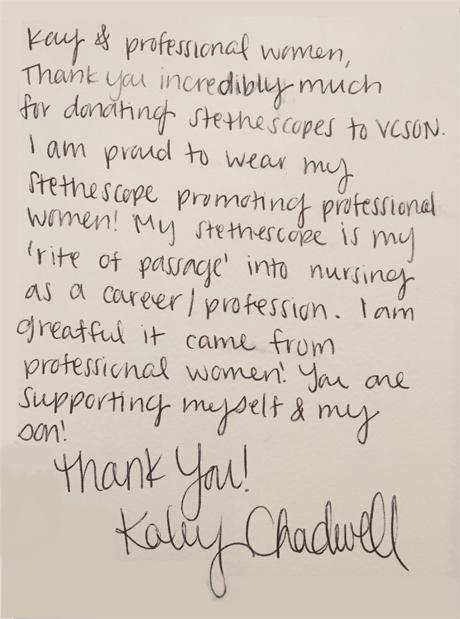 Kay & professional women,
Thank you incredibly much
for donating stethescopes to VCSON.
I am proud to wear my
stethescope promoting professional
women! My stethescope is my
'rite of passage' into nursing
as a career/profession. I am
greatful it came from
professional women! You are
supporting myself & my
son!
Thank you!
Kaley Chadwell